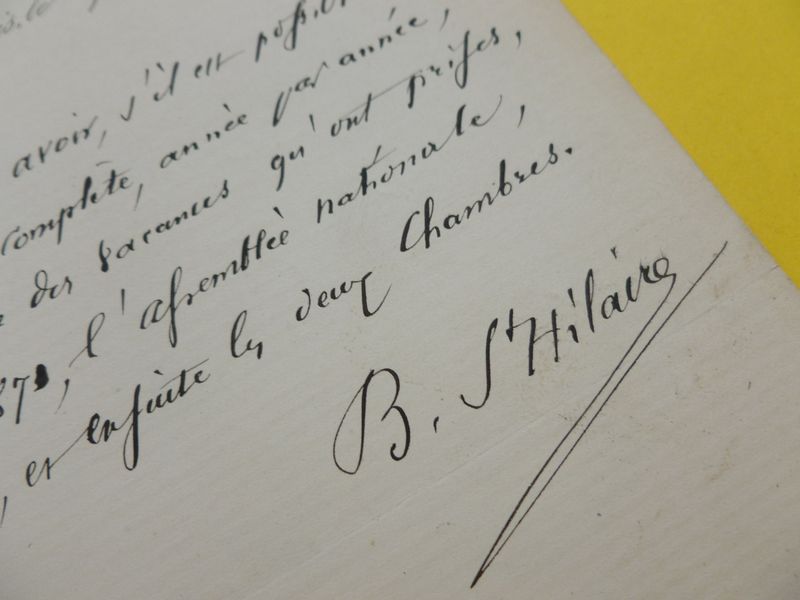 avoir, s'il est possib
complète, année par année,
des vacances qu'ont prises,
187, l'assemblée nationale,
et ensuite les deux Chambres.
B. St Hilaire